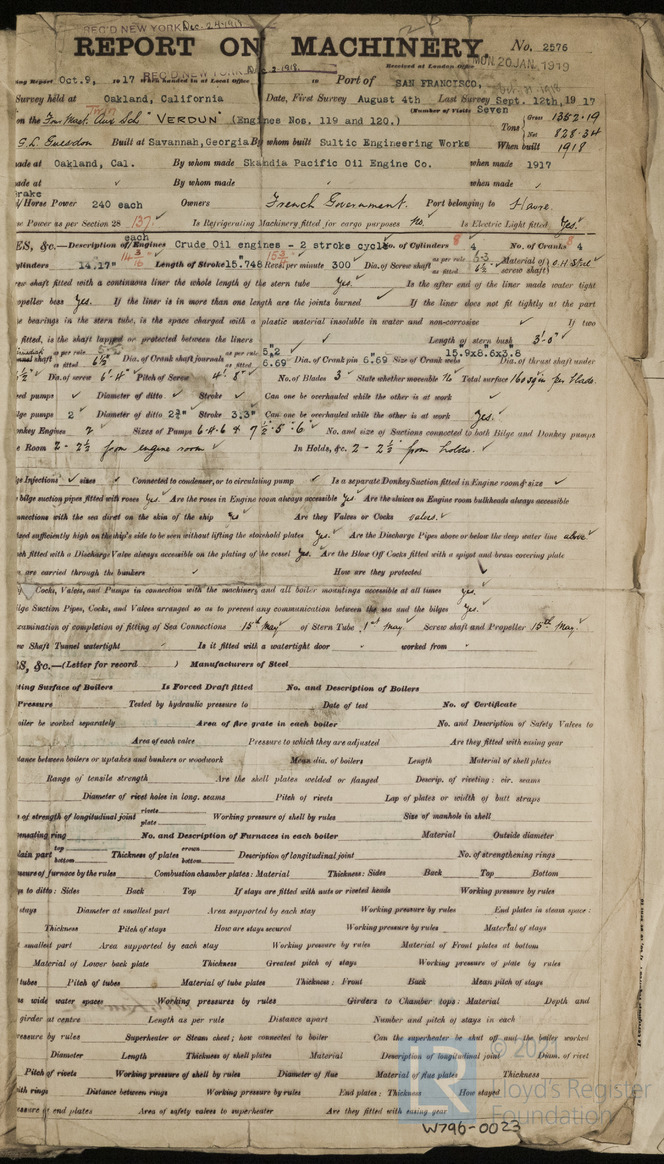 REC'D NEW YORK Dec. 24 1917
REPORT ON MACHINERY. No. 2576
Received at London Office MON. 20 JAN. 1919
ing Report Oct.9, 1917 When handed in at Local Office REC'D NEW YORK 1918. to Port of SAN FRANCISCO,
Survey held at Oakland, California Date, First Survey August 4th Last Survey Sept. 12th, 1917
(Number of Visits Seven
on the Aux Sch "VERDUN" (Engines Nos. 119 and 120.) Tons Gross 1352.19
Net 828.34
Built at Savannah, Georgia By whom built Sultic Engineering Works When built 1918
made at Oakland, Cal. By whom made Skandia Pacific Oil Engine Co. when made 1917
made at By whom made when made
Brake
Horse Power 240 each Owners French Government. Port belonging to Havre.
se Power as per Section 28 137 Is Refrigerating Machinery fitted for cargo purposes No. Is Electric Light fitted Yes.
ES, &c.—Description of Engines each Crude Oil engines - 2 stroke cycle No. of Cylinders 8 4 No. of Cranks 8 4
ylinders 14.17" Length of Stroke 15.748 Revs. per minute 300 Dia. of Screw shaft as per rule as fitted 6½" Material of screw shaft O.H. Steel
rew shaft fitted with a continuous liner the whole length of the stern tube Yes. Is the after end of the liner made water tight
opeller boss Yes. If the liner is in more than one length are the joints burned If the liner does not fit tightly at the part
e bearings in the stern tube, is the space charged with a plastic material insoluble in water and non-corrosive If two
fitted, is the shaft lapped or protected between the liners Length of stern bush 3'-0"
shaft as per rule as fitted 6½" Dia. of Crank shaft journals as per rule 5.2" as fitted 6.69" Dia. of Crank pin 6.69 Size of Crank webs 15.9x8.6x3.8 Dia. of thrust shaft under
Dia. of screw 6'-4" Pitch of Screw 4'.8" No. of Blades 3 State whether moveable No Total surface 160 sq in per blade.
eed pumps Diameter of ditto Stroke Can one be overhauled while the other is at work
lge pumps 2 Diameter of ditto 2¾" Stroke 3.3" Can one be overhauled while the other is at work Yes.
onkey Engines 2 Sizes of Pumps 6.4.6 & 7½.5.6 No. and size of Suctions connected to both Bilge and Donkey pumps
e Room 2 - 2½ from engine room In Holds, &c. 2 - 2½" from holds.
ge Injections sizes Connected to condenser, or to circulating pump Is a separate Donkey Suction fitted in Engine room & size
bilge suction pipes fitted with roses Yes. Are the roses in Engine room always accessible Yes Are the sluices on Engine room bulkheads always accessible
nnections with the sea direct on the skin of the ship Yes Are they Valves or Cocks valves.
ixed sufficiently high on the ship's side to be seen without lifting the stokehold plates Yes. Are the Discharge Pipes above or below the deep water line above
ch fitted with a Discharge Valve always accessible on the plating of the vessel Yes. Are the Blow Off Cocks fitted with a spigot and brass covering plate
s are carried through the bunkers How are they protected
Cocks, Valves, and Pumps in connection with the machinery and all boiler mountings accessible at all times yes.
lge Suction Pipes, Cocks, and Valves arranged so as to prevent any communication between the sea and the bilges Yes.
xamination of completion of fitting of Sea Connections 15th May of Stern Tube 1st May Screw shaft and Propeller 15th May.
ew Shaft Tunnel watertight Is it fitted with a watertight door worked from
S, &c.—(Letter for record ) Manufacturers of Steel
ting Surface of Boilers Is Forced Draft fitted No. and Description of Boilers
Pressure Tested by hydraulic pressure to Date of test No. of Certificate
oiler be worked separately Area of fire grate in each boiler No. and Description of Safety Valves to
Area of each valve Pressure to which they are adjusted Are they fitted with easing gear
tance between boilers or uptakes and bunkers or woodwork Mean dia. of boilers Length Material of shell plates
Range of tensile strength Are the shell plates welded or flanged Descrip. of riveting: cir. seams
Diameter of rivet holes in long. seams Pitch of rivets Lap of plates or width of butt straps
s of strength of longitudinal joint rivets plate Working pressure of shell by rules Size of manhole in shell
pensating ring No. and Description of Furnaces in each boiler Material Outside diameter
lain part top bottom Thickness of plates crown bottom Description of longitudinal joint No. of strengthening rings
ressure of furnace by the rules Combustion chamber plates: Material Thickness: Sides Back Top Bottom
ys to ditto: Sides Back Top If stays are fitted with nuts or riveted heads Working pressure by rules
stays Diameter at smallest part Area supported by each stay Working pressure by rules End plates in steam space:
Thickness Pitch of stays How are stays secured Working pressure by rules Material of stays
smallest part Area supported by each stay Working pressure by rules Material of Front plates at bottom
Material of Lower back plate Thickness Greatest pitch of stays Working pressure of plate by rules
tubes Pitch of tubes Material of tube plates Thickness: Front Back Mean pitch of stays
ss wide water spaces Working pressures by rules Girders to Chamber tops: Material Depth and
girder at centre Length as per rule Distance apart Number and pitch of stays in each
ressure by rules Superheater or Steam chest; how connected to boiler Can the superheater be shut off and the boiler worked
Diameter Length Thickness of shell plates Material Description of longitudinal joint Diam. of rivet
Pitch of rivets Working pressure of shell by rules Diameter of flue Material of flue plates Thickness
ith rings Distance between rings Working pressure by rules End plates: Thickness How stayed
essure of end plates Area of safety valves to superheater Are they fitted with easing gear
© 2021
Lloyd's Register
Foundation
W796-0023